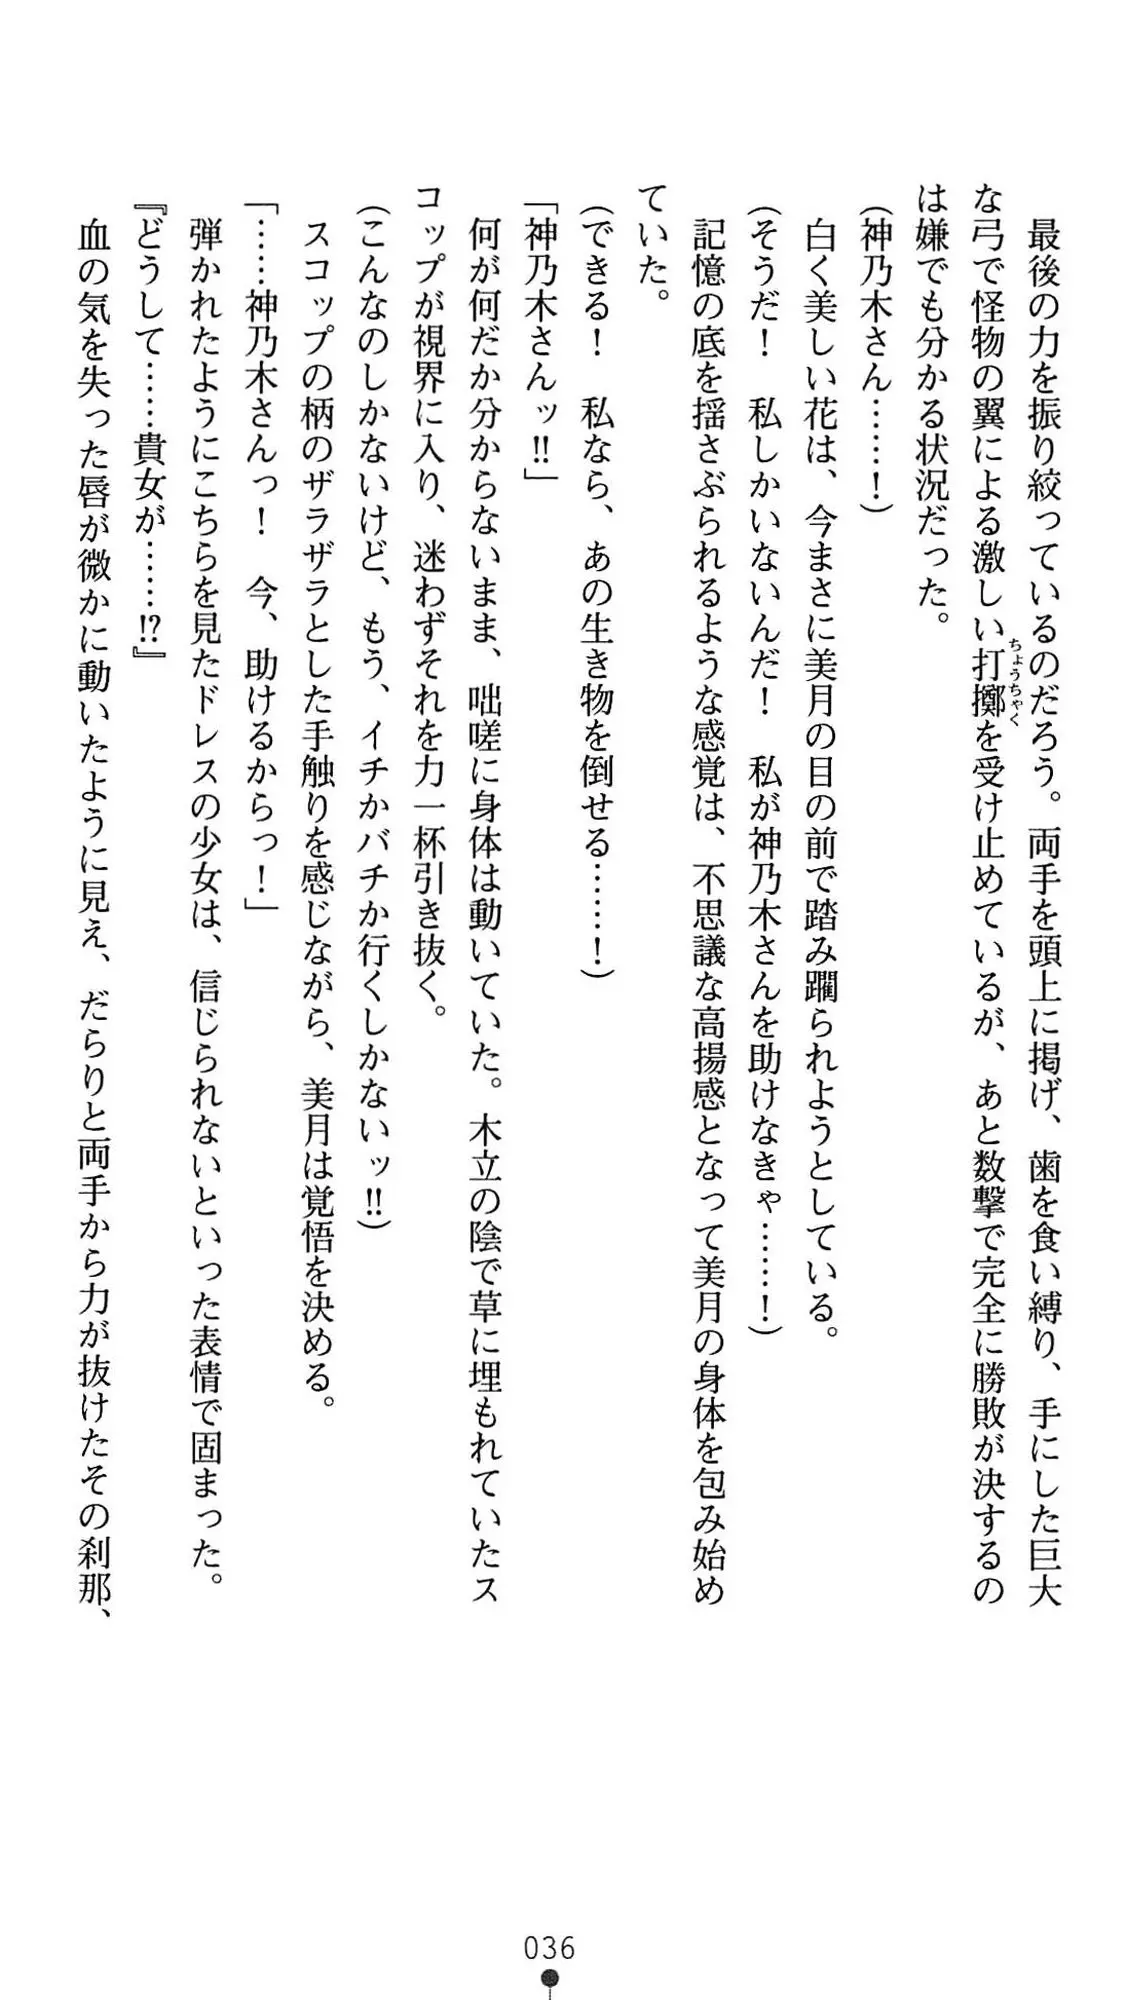 最後の力を振り絞っているのだろう。両手を頭上に掲げ、歯を食い縛り、手にした巨大
な弓で怪物の翼による激しい打擲を受け止めているが、あと数撃で完全に勝敗が決するの
ちょうちゃく
は嫌でも分かる状況だった。
(神乃木さん……！)
白く美しい花は、今まさに美月の目の前で踏み躙られようとしている。
(そうだ！　私しかいないんだ！　私が神乃木さんを助けなきゃ……！)
記憶の底を揺さぶられるような感覚は、不思議な高揚感となって美月の身体を包み始め
ていた。
(できる！　私なら、あの生き物を倒せる……！)
「神乃木さんッ!!」
何が何だか分からないまま、咄嗟に身体は動いていた。木立の陰で草に埋もれていたス
コップが視界に入り、迷わずそれを力一杯引き抜く。
(こんなのしかないけど、もう、イチかバチか行くしかないッ!!)
スコップの柄のザラザラとした手触りを感じながら、美月は覚悟を決める。
「……神乃木さんっ！　今、助けるからっ！」
弾かれたようにこちらを見たドレスの少女は、信じられないといった表情で固まった。
『どうして……貴女が……!?』
血の気を失った唇が微かに動いたように見え、だらりと両手から力が抜けたその刹那、
036